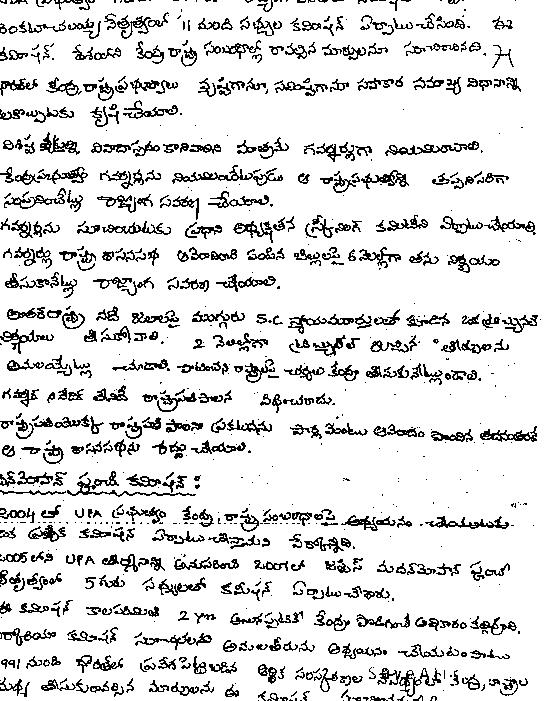 వెంకటాచలయ్య నేతృత్వంలో 11 మంది సభ్యుల కమిషన్ ఏర్పాటుచేసింది. ఈ
కమిషన్. దేశంలోని కేంద్ర రాష్ట్ర సంబంధాల్లో రావల్సిన మార్పులనూ సూచించినది.
భారత్‌లో కేంద్ర, రాష్ట్ర ప్రభుత్వాలు వ్యష్టిగానూ, సమిష్టిగానూ సహకార సమాఖ్య విధానాన్ని
కృషి చేయాలి.
విశిష్ట వ్యక్తుల్ని వివాదాస్పదం కానివారిని మాత్రమే గవర్నర్లుగా నియమించాలి.
కేంద్రప్రభుత్వం గవర్నర్లను నియమించేటపుడు ఆ రాష్ట్రప్రభుత్వాన్ని తప్పనిసరిగా
సంప్రదించేట్లు రాజ్యాంగ సవరణ చేయాలి.
గవర్నర్లను సూచించుటకు ప్రధాని అధ్యక్షతన స్క్రీనింగ్ కమిటీని ఏర్పాటుచేయాలి
గవర్నర్లు రాష్ట్ర శాసనసభ ఆమోదించి పంపిన బిల్లులపై 6 నెల్లోగా తను నిర్ణయం
తీసుకొనేట్లు రాజ్యాంగ సవరణ చేయాలి.
అంతర్‌రాష్ట్ర నదీ జలాలపై ముగ్గురు S.C న్యాయమూర్తులతో కూడిన ఒక ట్రిబ్యునల్
నిర్ణయాలు తీసుకోవాలి. 2 నెలల్లోగా ట్రిబ్యునల్ ఇచ్చిన తీర్పులను
అమలయ్యేట్లు చూడాలి. పాటించని రాష్ట్రాలపై చర్యలు కేంద్రం తీసుకునేట్లుండాలి.
గవర్నర్ నివేదిక లేనిదే రాష్ట్రపతిపాలన విధించరాదు.
రాష్ట్రపతియొక్క రాష్ట్రపతి పాలనా ప్రకటనను పార్లమెంటు ఆమోదం పొందిన తదనంతరమే
ఆ రాష్ట్ర శాసనసభను రద్దు చేయాలి.
మదన్‌మోహన్ పూంఛీ కమిషన్ :
2004 లో UPA ప్రభుత్వం కేంద్ర, రాష్ట్ర సంబంధాలపై అధ్యయనం చేయుటకు
ఒక ప్రత్యేక కమిషన్ ఏర్పాటు చేస్తామని పేర్కొన్నది.
2005లోని UPA తీర్మానాన్ని అనుసరించి 2007లో జస్టిస్ మదన్‌మోహన్ పూంఛీ
నేతృత్వంలో 5గురు సభ్యులతో కమీషన్ ఏర్పాటు చేశారు.
ఈ కమిషన్ కాలపరిమితి 2 yrs అయినప్పటికీ కేంద్రం పొడిగించే అధికారం కల్గిఉంది.
సర్కారియా కమిషన్ సూచనలను అమలుతీరును అధ్యయనం చేయటంతోపాటు
1991 నుండి భారత్‌లో ప్రవేశపెట్టబడిన ఆర్థిక సంస్కరణల నేపథ్యంలో కేంద్ర, రాష్ట్రాల
మధ్య తీసుకురావల్సిన మార్పులను ఈ కమిషన్